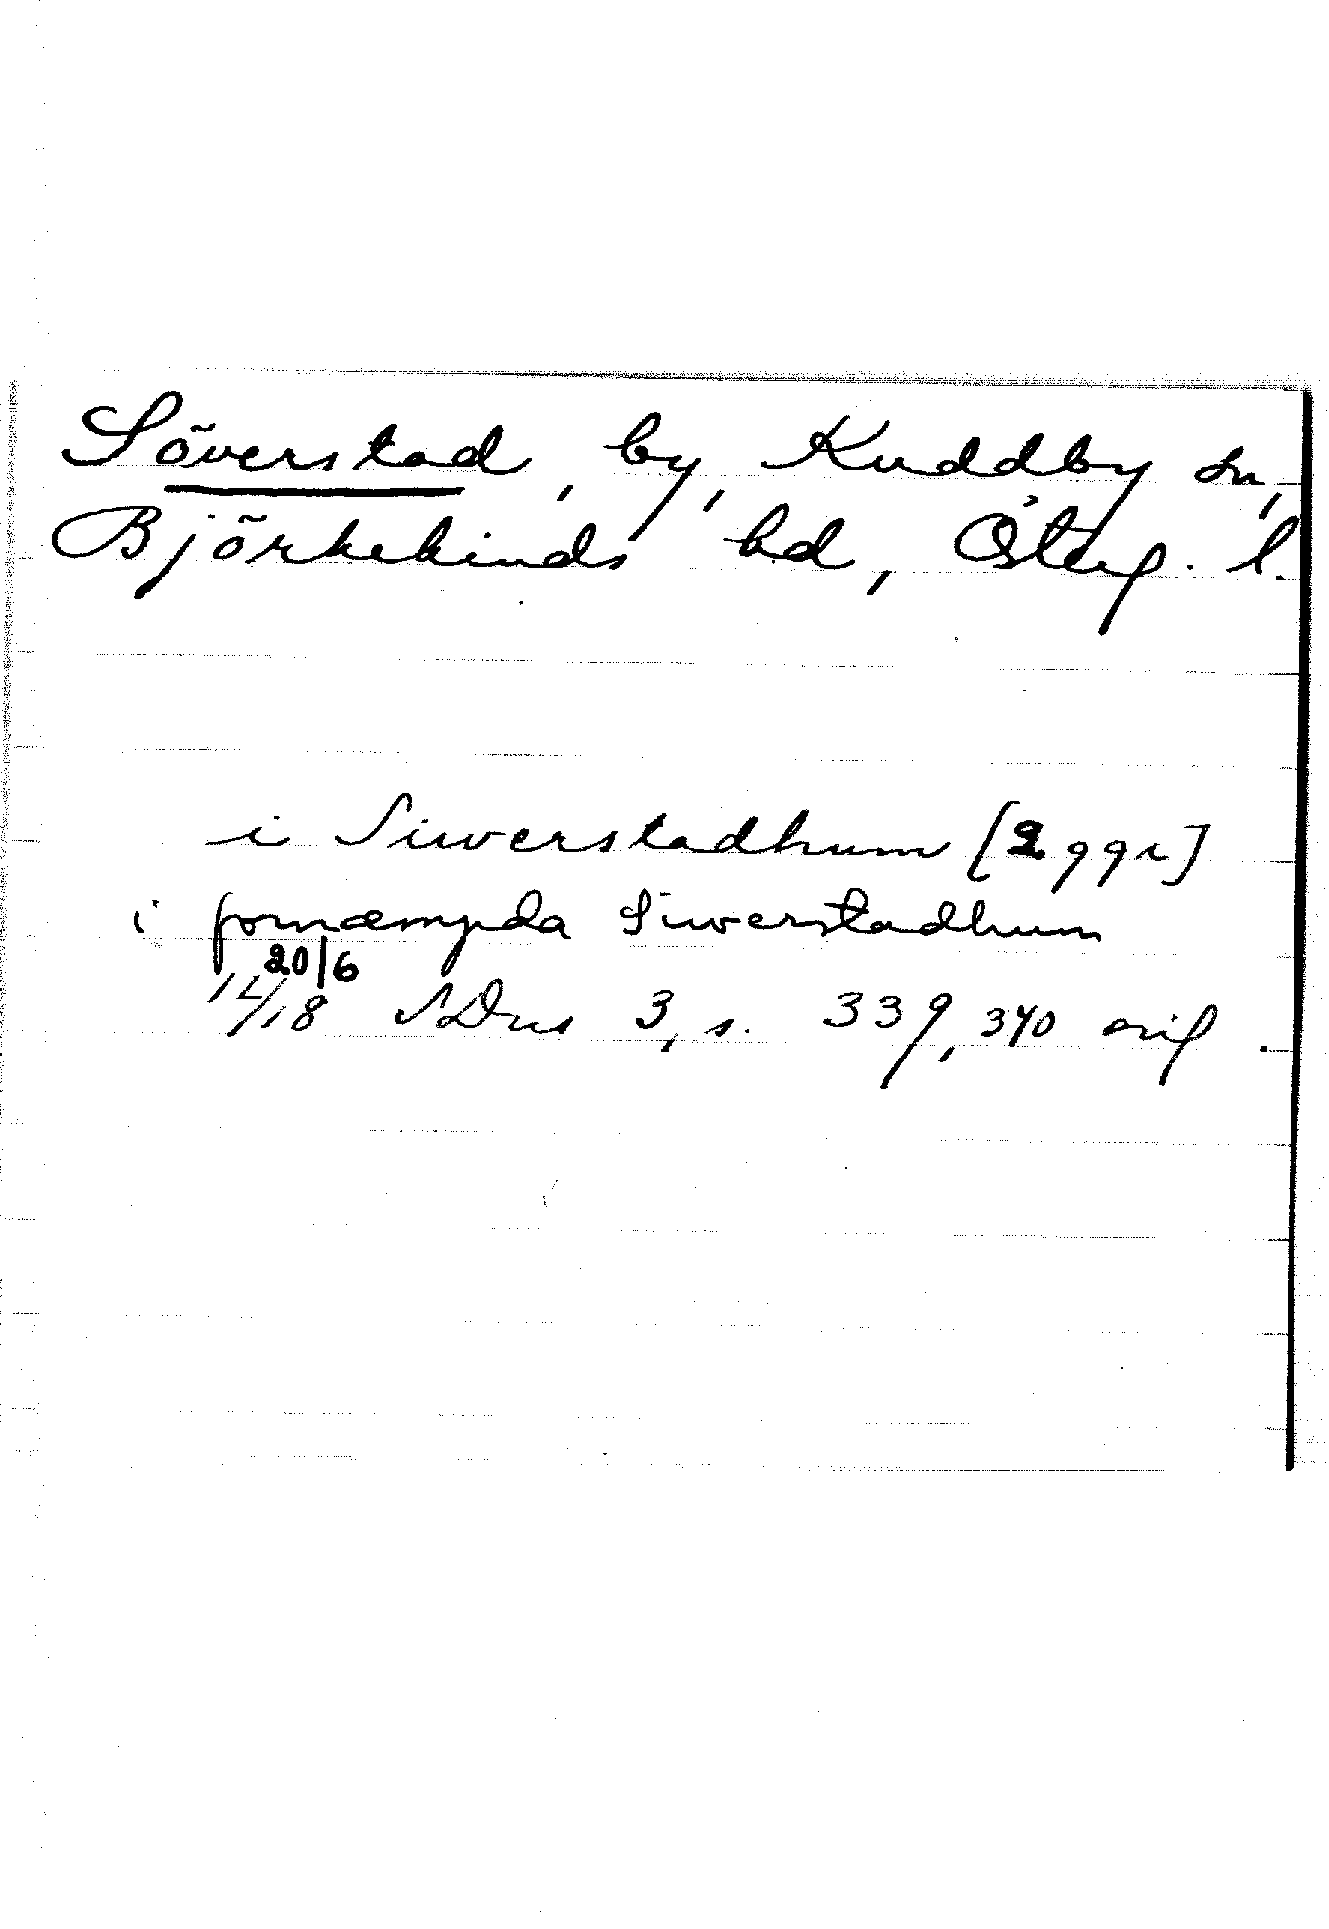 Söverstad, by, Kuddby sn,
Björkekinds hd, Österg. l.
i Siwerstadhum [2 ggr]
i fornæmpda Siwerstadhum
20/6
14/18 SDns 3, s. 339, 340 orig.